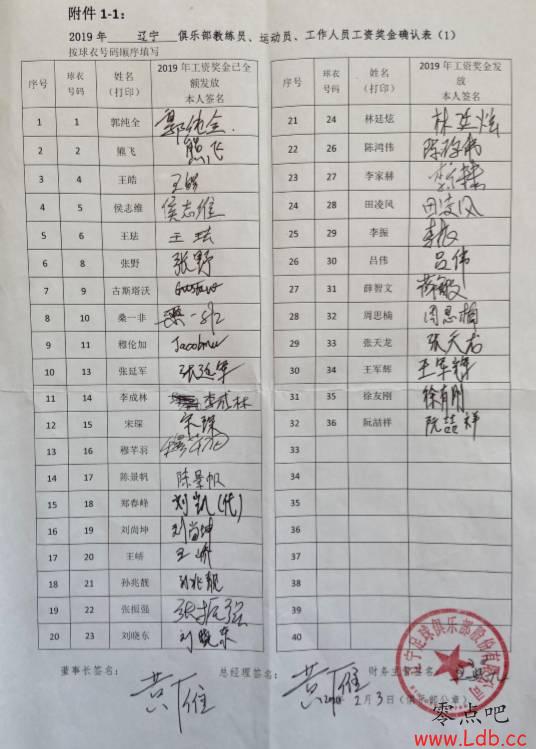 附件 1-1:
2019 年 辽宁 俱乐部教练员、运动员、工作人员工资奖金确认表（1）
按球衣号码顺序填写
序号 球衣号码 姓名（打印） 2019 年工资奖金已全额发放 本人签名
1 1 郭纯全 郭纯全
2 2 熊飞 熊飞
3 4 王皓 王皓
4 5 侯志维 侯志维
5 6 王珐 王珐
6 8 张野 张野
7 9 古斯塔沃 Gustavo
8 10 桑一非 桑一非
9 11 穆伦加
10 13 张延军 张延军
11 14 李成林 李成林
12 15 宋琛 宋琛
13 16 穆芊羽
14 17 陈景帆 陈景帆
15 18 郑春峰 刘凯(代)
16 19 刘尚坤 刘尚坤
17 20 王峤 王峤
18 21 孙兆靓 孙兆靓
19 22 张振强 张振强
20 23 刘晓东 刘晓东
序号 球衣号码 姓名（打印） 2019 年工资奖金发放 本人签名
21 24 林廷炫 林廷炫
22 26 陈鸿伟
23 27 李家赫
24 28 田凌风 田凌风
25 29 李振 李振
26 30 吕伟 吕伟
27 31 薛智文
28 32 周思楠 周思楠
29 33 张天龙 张天龙
30 34 王军辉 王军辉
31 35 徐友刚 徐有刚
32 36 阮喆祥 阮喆祥
33
34
35
36
37
38
39
40
董事长签名： 总经理签名： 财务主管签名：
黄雁 黄雁
2月3日（俱乐部公章）
宁足球俱乐部股份有限公司
零点吧
www.Ldb.cc